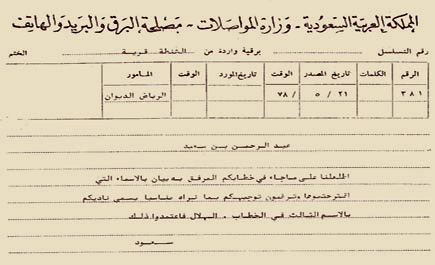 المملكة العربية السعودية - وزارة المواصلات - مصلحة البرق والبريد والهاتف
رقم التسلسل برقية واردة من الختم
الرقم الكلمات تاريخ المصدر الوقت تاريخ المورد الوقت المأمور
٣٨١ ٢١ / ٥ / ٧٨ الرياض الديوان
عبد الرحمن بن سعد
اطلعنا على ماجاء في خطابكم المرفق به بيان بالاسماء التي
اقترحتموها وترغبون توجيهكم بما نراه مناسبا يسمى ناديكم
بالاسم الثالث في الخطاب . الهلال فاعتمدوا ذلك
سعود